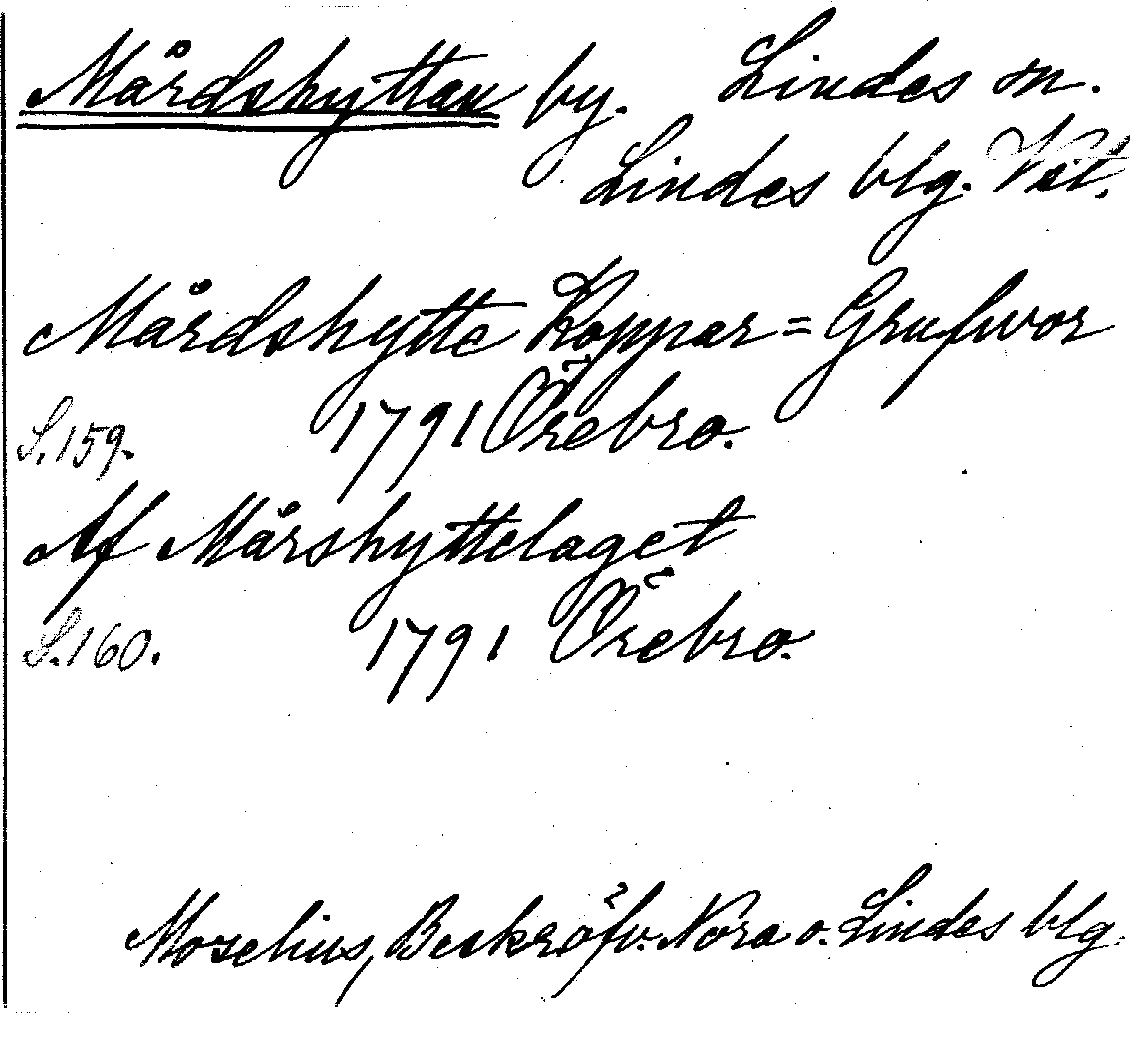 Mårdshyttan by. Lindes sn.
Lindes blg. Vät.
Mårdshytte Koppar=Grufwor
S.159. 1791 Örebro.
Af Mårshyttelaget
S.160. 1791 Örebro.
Moselius, Beskr. öfv. Nora o. Lindes blg.